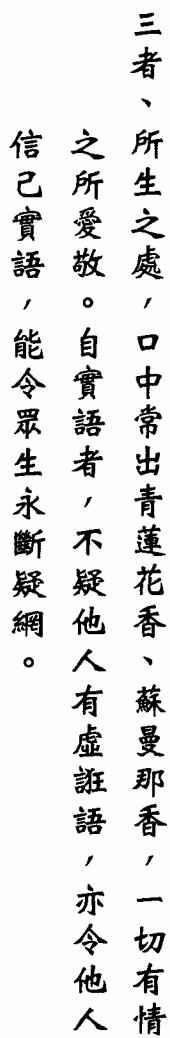 三者、所生之處，口中常出青蓮花香、蘇曼那香，一切有情
之所愛敬。自實語者，不疑他人有虛誑語，亦令他人
信己實語，能令眾生永斷疑網。